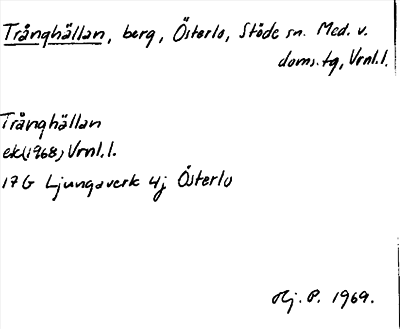 Trånghällan, berg, Österlo, Stöde sn. Med. v.
doms. tg, Vrnl.l.
Trånghällan
ek(1968) Vrnl.l.
17G Ljungaverk 4j Österlo
Hj. P. 1969.